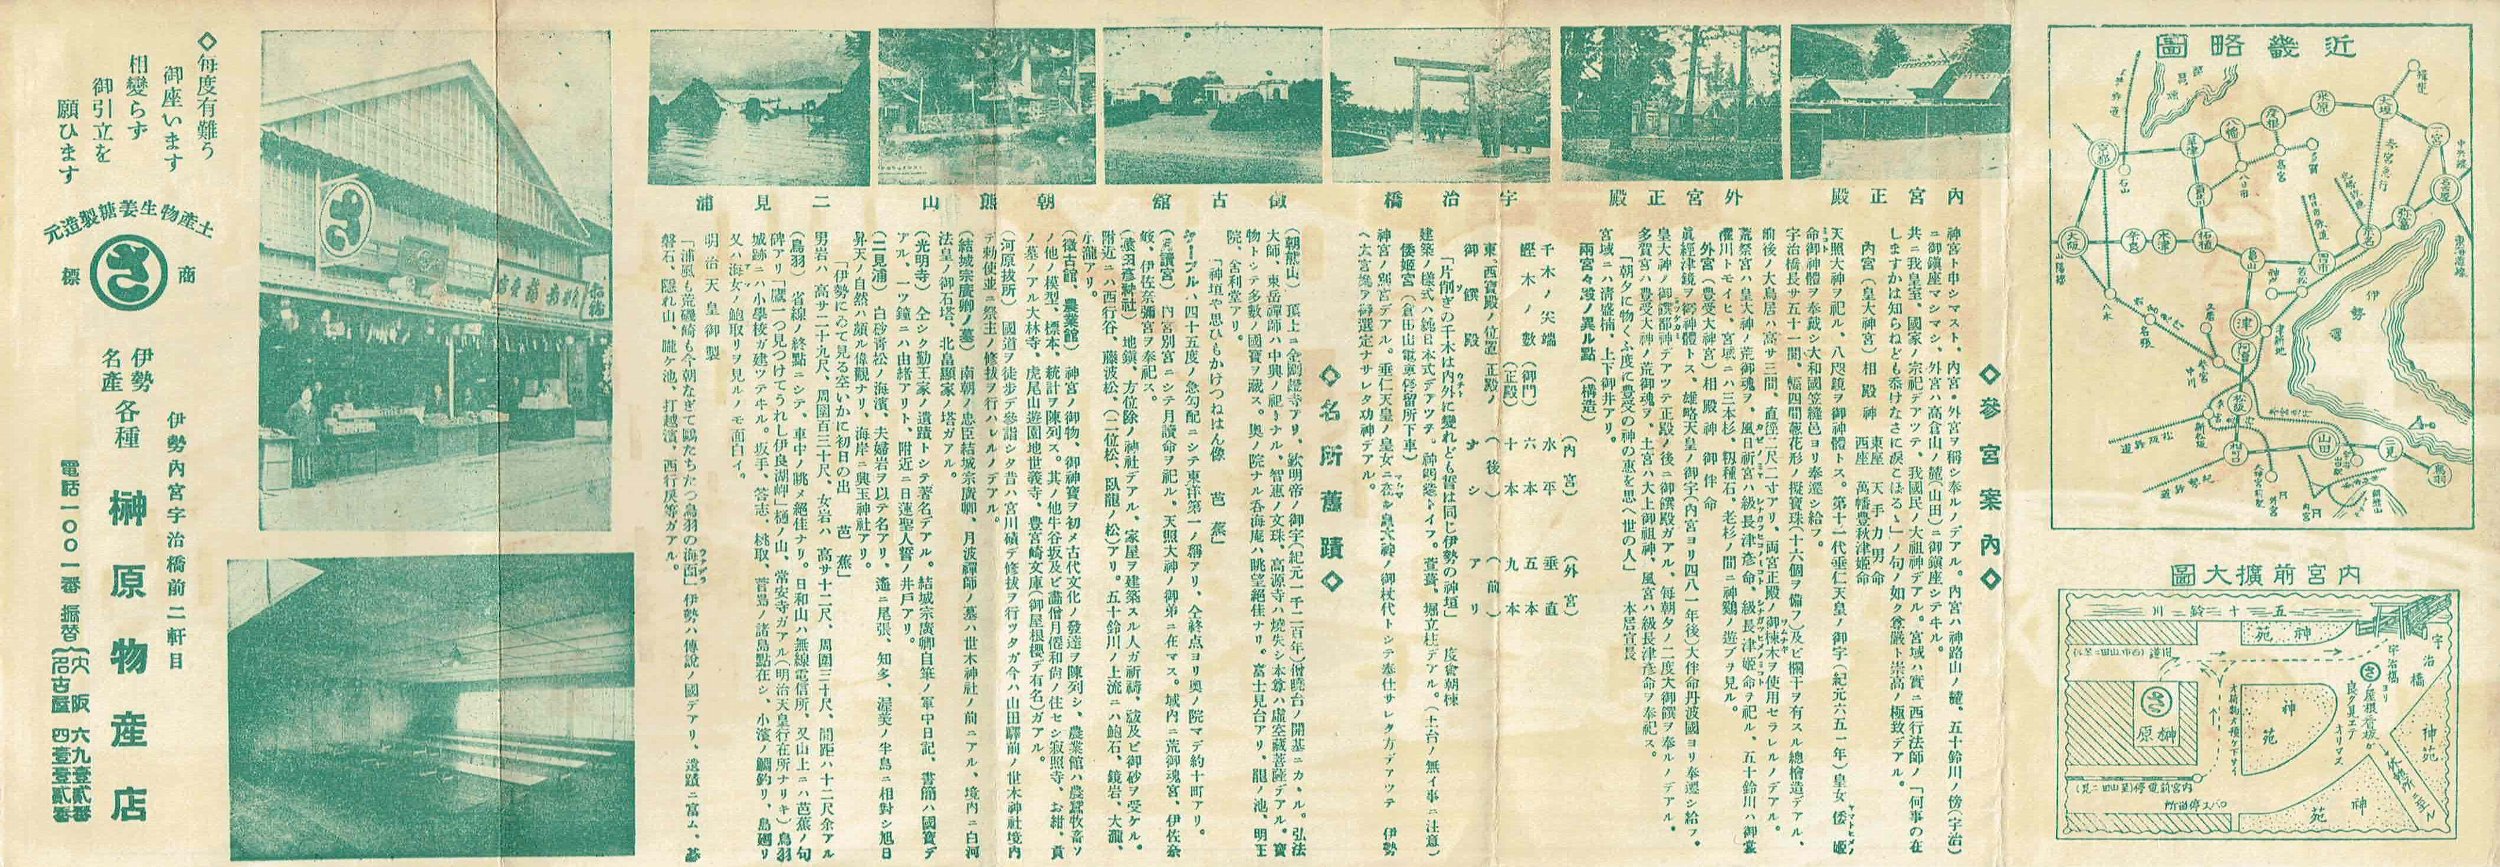 近畿略圖
内宮前擴大圖
五十鈴川
宇治橋
神苑
神苑
神苑
榊原
バス停留所
内宮正殿
外宮正殿
宇治橋
徴古館
朝熊山
二見浦
◇參宮案内◇
神宮ト申シマスト、内宮・外宮ヲ稱シ奉ルノデアル。内宮ハ神路山ノ麓、五十鈴川ノ傍(宇治)
ニ御鎮座マシマシ、外宮ハ高倉山ノ麓(山田)ニ御鎮座シテヰル。
共ニ我皇室、國家ノ宗祀デアツテ、我國民ノ大祖神デアル。宮域ハ實ニ西行法師ノ「何事の在
しますかは知らねども忝けなさに涙こぼるゝ」ノ句ノ如ク尊嚴ト崇高ノ極致デアル。
内宮(皇大神宮)相殿神 東座 天手力男命
西座 萬幡豊秋津姫命
天照大神ヲ祀ル、八咫鏡ヲ御神體トス。第十一代垂仁天皇ノ御宇(紀元六五一年)皇女倭姫
命御神體ヲ奉戴シ大和國笠縫邑ヨリ奉遷シ給フ。
宇治橋長サ五十一間、幅四間葱花形ノ擬寶珠(十六個ヲ備フ)及ビ欄干ヲ有スル總檜造デアル、
前後ノ大鳥居ハ高サ三間、直徑二尺二寸アリ、兩宮正殿ノ御棟木ヲ使用セラレルノデアル。
荒祭宮ハ皇大神ノ荒御魂ヲ、風日祈宮ハ級長津彦命、級長津姫命ヲ祀ル、五十鈴川ハ御裳
濯川トモイヒ、宮域ニハ三本杉、籾種石、老杉ノ間ニ神鷄ノ遊ブヲ見ル。
外宮(豊受大神宮)相殿神 御伴命
眞經津鏡ヲ御神體トス、雄略天皇ノ御宇(内宮ヨリ四八一年後)大伴命丹波國ヨリ奉遷シ給フ。
皇大神ノ御饌都神デアツテ正殿ノ後ニ御饌殿ガアル、毎朝夕ノ二度大御饌ヲ奉ルノデアル。
多賀宮ハ豊受大神ノ荒御魂ヲ、土宮ハ大土御祖神、風宮ハ級長津彦命ヲ奉祀ス。
宮域ニハ清盛楠、上下御井アリ。
「朝夕に物くふ度に豊受の神の惠を思へ世の人」 本居宣長
兩宮々殿ノ異ル點(構造)
(内宮) (外宮)
千木ノ尖端(御門) 水平 垂直
鰹木ノ數 六本 五本
(正殿) 十本 九本
東、西寶殿ノ位置 正殿ノ (後) (前)
御饌殿 ナシ アリ
「片削ぎの千木は内外に變れども誓は同じ伊勢の神垣」 度會朝棟
建築ノ樣式ハ純日本式デアツテ。神明造トイフ。萱葺、堀立柱デアル。(土台ノ無イ事ニ注意)
倭姫宮(倉田山電車停留所下車)
神宮ノ別宮デアル。垂仁天皇ノ皇女ニ在シ皇大神ノ御杖代トシテ奉仕サレタ方デアツテ 伊勢
ヘ大宮處ヲ御選定ナサレタ功神デアル。
◇名所舊蹟◇
(朝熊山) 頂上ニ金剛證寺アリ、欽明帝ノ御宇(紀元一千二百年)僧曉台ノ開基ニカヽル。弘法
大師、東岳禪師ハ中興ノ祖トナル、智惠ノ文珠、高源寺ハ燒失シ本尊ハ虚空藏菩薩デアル。寶
物トシテ多數ノ國寶ヲ藏ス。奧ノ院ナル呑海庵ハ眺望絶佳ナリ。富士見台アリ、龍ノ池、明王
院、舍利堂アリ。
「神垣や思ひもかけつねはん像 芭蕉」
ケーブルハ四十五度ノ急勾配ニシテ東洋第一ノ稱アリ、全終点ヨリ奥ノ院マデ約十町アリ。
(月讀宮) 内宮別宮ニシテ月讀命ヲ祀ル、天照大神ノ御弟ニ在マス。域内ニ荒御魂宮、伊佐奈
岐、伊佐奈彌宮ヲ奉祀ス。
(猿田彦神社) 地鎮、方位除ノ神社デアル、家屋ヲ建築スル人ガ祈禱、祓及ビ御砂ヲ受ケル。
附近ニハ西行谷、藤波松、(二位松、臥龍ノ松)アリ。五十鈴川ノ上流ニハ鮑石、鏡岩、大瀧、
小瀧アリ。
(徴古館、農業館) 神宮ノ御物、御神寶ヲ初メ古代文化ノ發達ヲ陳列シ、農業館ハ農蠶牧畜ソ
ノ他ノ模型、標本、統計ヲ陳列ス。其ノ他牛谷坂及ビ畵僧月僊和尚ノ住セシ寂照寺、お紺、貢
ノ墓ノアル大林寺、虎尾山遊園地世義寺、豊宮崎文庫(御屋根櫻デ有名)ガアル。
(河原祓所) 國道ヲ徒歩デ參詣シタ昔ハ宮川磧デ修祓ヲ行ツタガ今ハ山田驛前ノ世木神社境内
デ勅使並ニ祭主ノ修祓ヲ行ハレルノデアル。
(結城宗廣卿ノ墓) 南朝ノ忠臣結城宗廣卿、月波禪師ノ墓ハ世木神社ノ前ニアル、境内ニ白河
法皇ノ御石塔、北畠顯家ノ塔ガアル。
(光明寺) 仝シク勤王家ノ遺蹟トシテ著名デアル。結城宗廣卿自筆ノ軍中日記、書簡ハ國寶デ
アル、一ツ鐘ニハ由緒アリト、附近ニ日蓮聖人誓ノ井戸アリ。
(二見浦) 白砂靑松ノ海濱、夫婦岩ヲ以テ名アリ、遙ニ尾張、知多、渥美ノ半島ニ相對シ旭日
昇天ノ自然ハ頗ル偉觀ナリ、海岸ニ興玉神社アリ。
「伊勢にゐて見る空いかに初日の出 芭蕉」
男岩ハ高サ二十九尺、周圍百三十尺、女岩ハ高サ十二尺、周圍三十尺、間距ハ十二尺余アル
(鳥羽) 省線ノ終點ニシテ、車中ノ眺メ絶佳ナリ。日和山ハ無線電信所、又山上ニハ芭蕉ノ句
碑アリ「鷹一つ見つけてうれし伊良湖岬」樋ノ山、常安寺ガアル(明治天皇行在所ナリキ)鳥羽
城跡ニハ小學校ガ建ツテヰル。坂手、答志、桃取、菅島ノ諸島點在シ、小濱ノ鯛釣リ、島廻リ
又ハ海女ノ鮑取リヲ見ルノモ面白イ。
明治天皇御製
「浦風も荒磯崎も今朝なぎて鷗たちたつ鳥羽の海面」伊勢ハ傳說ノ國デアリ、遺蹟ニ富ム、
磐石、隱れ山、朧ケ池、打越濱、西行戻等ガアル。
◇毎度有難う
御座います
相變らず
御引立を
願ひます
土産物生姜糖製造元
商標
さ
伊勢内宮宇治橋前二軒目
伊勢名產各種 榊原物産店
電話一〇〇一番 振替{大阪 六九壹貳番
名古屋 四壹壹貳番